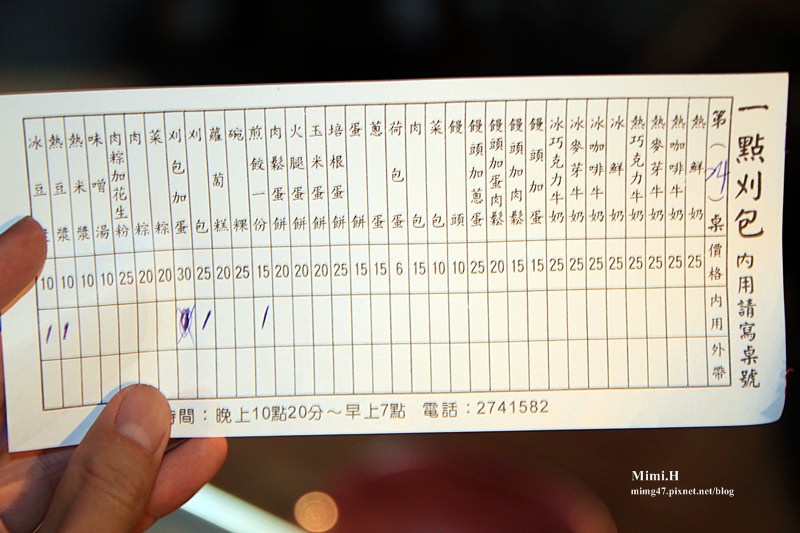 一點刈包 內用請寫桌號
第(4)桌 價格 內用 外帶
熱鮮奶 25
熱咖啡牛奶 25
熱麥芽牛奶 25
熱巧克力牛奶 25
冰鮮奶 25
冰咖啡牛奶 25
冰麥芽牛奶 25
冰巧克力牛奶 25
饅頭加蛋 15
饅頭加肉鬆 15
饅頭加蛋肉鬆 20
饅頭加蔥蛋 25
饅頭 10
菜包 10
肉包 15
荷包蛋 6
蔥蛋 15
蛋餅 15
培根蛋餅 25
玉米蛋餅 20
火腿蛋餅 20
肉鬆蛋餅 20
煎餃一份 15 /
碗粿 25
蘿蔔糕 20
刈包 25 /
刈包加蛋 30
菜粽 20
肉粽 20
肉粽加花生粉 25
味噌湯 10
熱米漿 10
熱豆漿 10 /
冰豆漿 10 /
時間：晚上10點20分～早上7點 電話：2741582
Mimi.H
mimg47.pixnet.net/blog